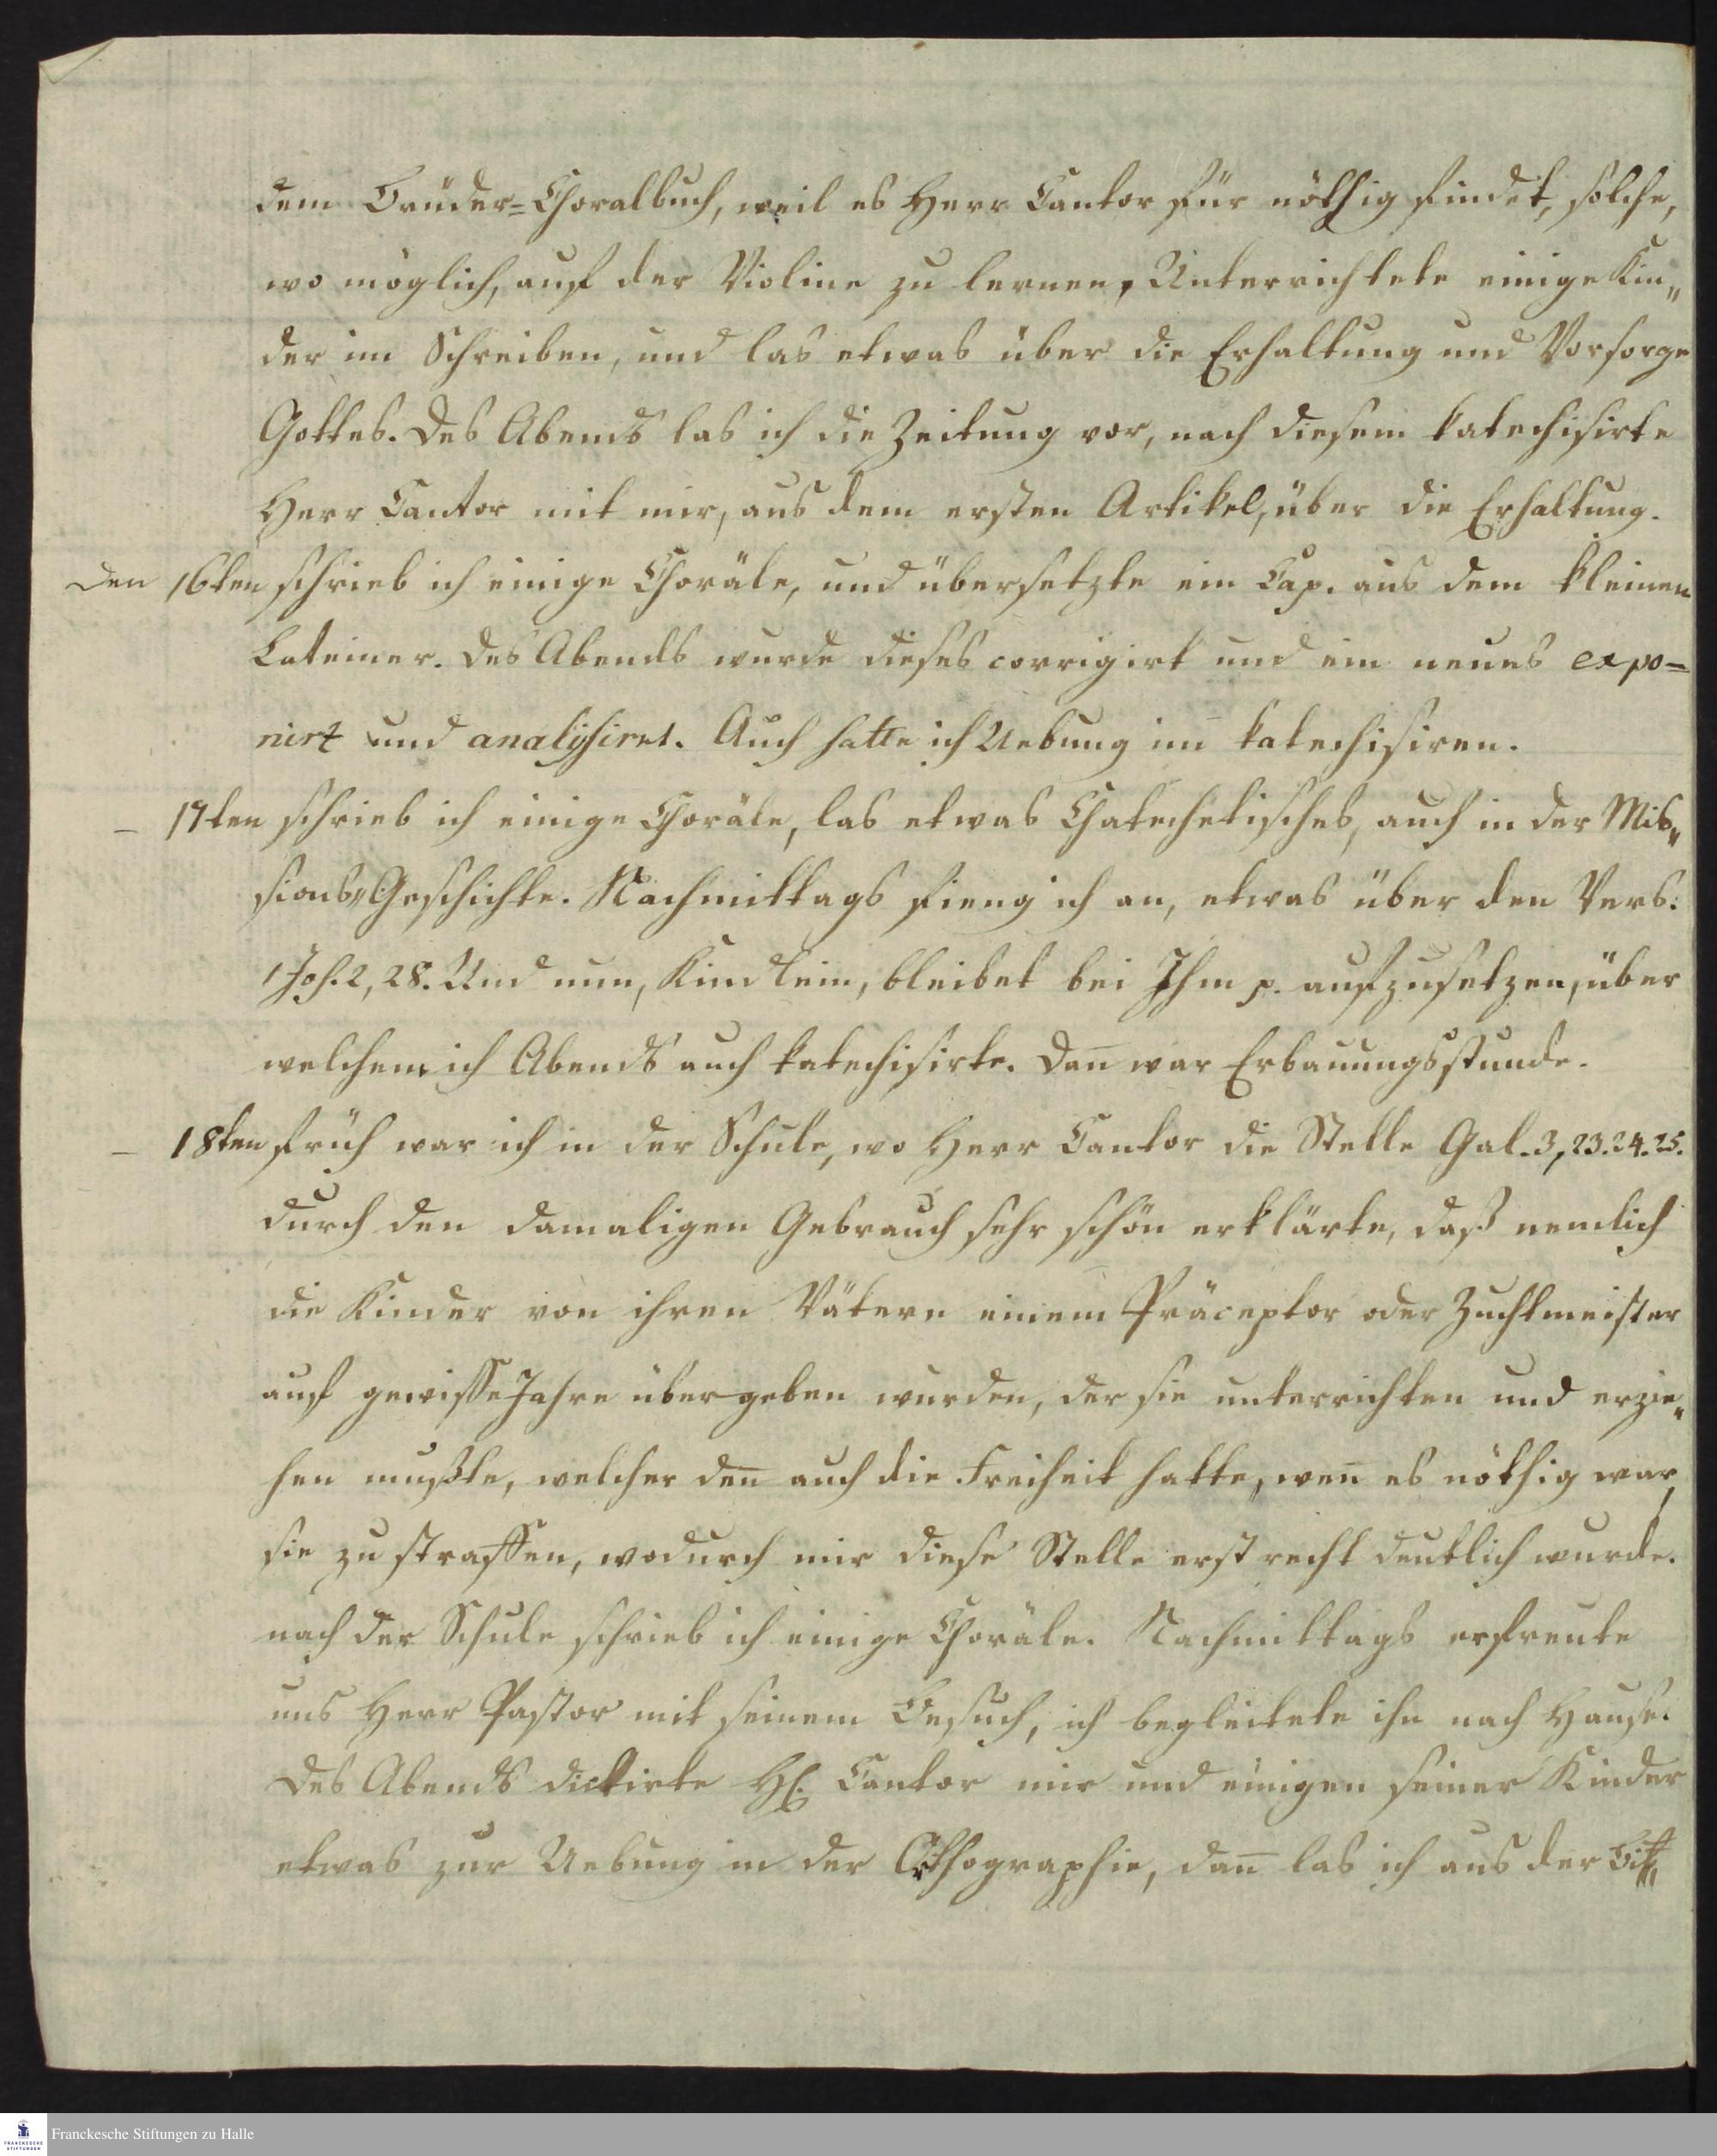 dem Brüder=Choralbuch, weil es Herr Cantor für nöthig findet, solche,
wo möglich, auf der Violine zu lernen, Unterrichtete einige Kin„
der im Schreiben, und las etwas über die Erhaltung und Vorsorge
Gottes. Des Abends las ich die Zeitung vor, nach diesem katechisirte
Herr Cantor mit mir, aus dem ersten Artikel, über die Erhaltung.
Den 16ten schrieb ich einige Choräle, und übersetzte ein Cap. aus dem kleinen
Lateiner. Des Abends wurde dieses corrigirt und ein neues expo=
nirt und analysiret. Auch hatte ich Uebung im̅ katechisiren.
– 17ten schrieb ich einige Choräle, las etwas Chatechetisches, auch in der Mis„
sions„Geschichte. Nachmittags fieng ich an, etwas über den Vers:
1 Joh. 2, 28. Und nun, Kindlein, bleibet bei Ihm p. aufzusetzen, über
welchem ich Abends auch katechisirte. Dan̅ war Erbauungsstunde.
– 18ten früh war ich in der Schule, wo Herr Cantor die Stelle Gal. 3, 23. 24. 25.
durch den damaligen Gebrauch sehr schön erklärte, daß nemlich
die Kinder von ihren Vätern einem Präceptor oder Zuchtmeister
auf gewisse Jahre übergeben wurden, der sie unterrichten und erzie„
hen mußte, welcher den̅ auch die Freiheit hatte, wen̅ es nöthig war,
sie zu straffen, wodurch mir diese Stelle erst recht deutlich wurde.
nach der Schule schrieb ich einige Choräle. Nachmittags erfreute
uns Herr Pastor mit seinem Besuch, ich begleitete ihn nach Hause.
Des Abends dicktirte H. Cantor mir und einigen seiner Kinder
etwas zur Uebung in der Orthographie, dan̅ las ich aus der
Franckesche Stiftungen zu Halle
FRANCKESCHE
STIFTUNGEN